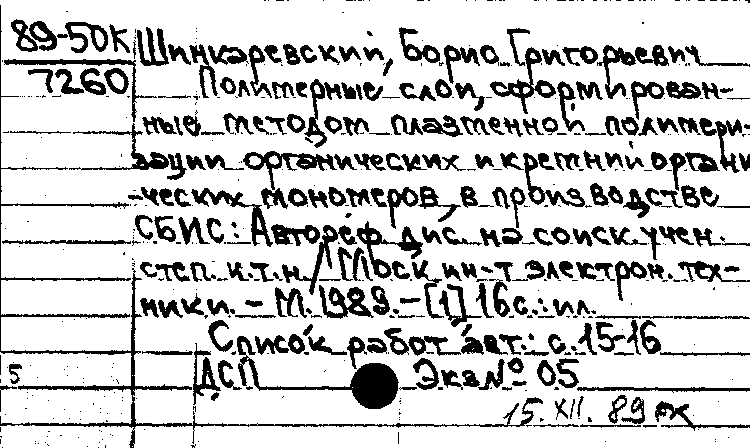 89-50К
7260
Шинкаревский, Борис Григорьевич
Полимерные слои, сформирован-
ные методом плазменной полимери-
зации органических и кремнийоргани
-ческих мономеров, в производстве
СБИС: Автореф. дис. на соиск. учен.
степ. к.т.н. / Моск. ин-т электрон. тех-
ники. - М. 1989. - [1] 16 с.: ил.
Список работ авт.: с. 15-16
5
ДСП Экз № 05
15. XII. 89